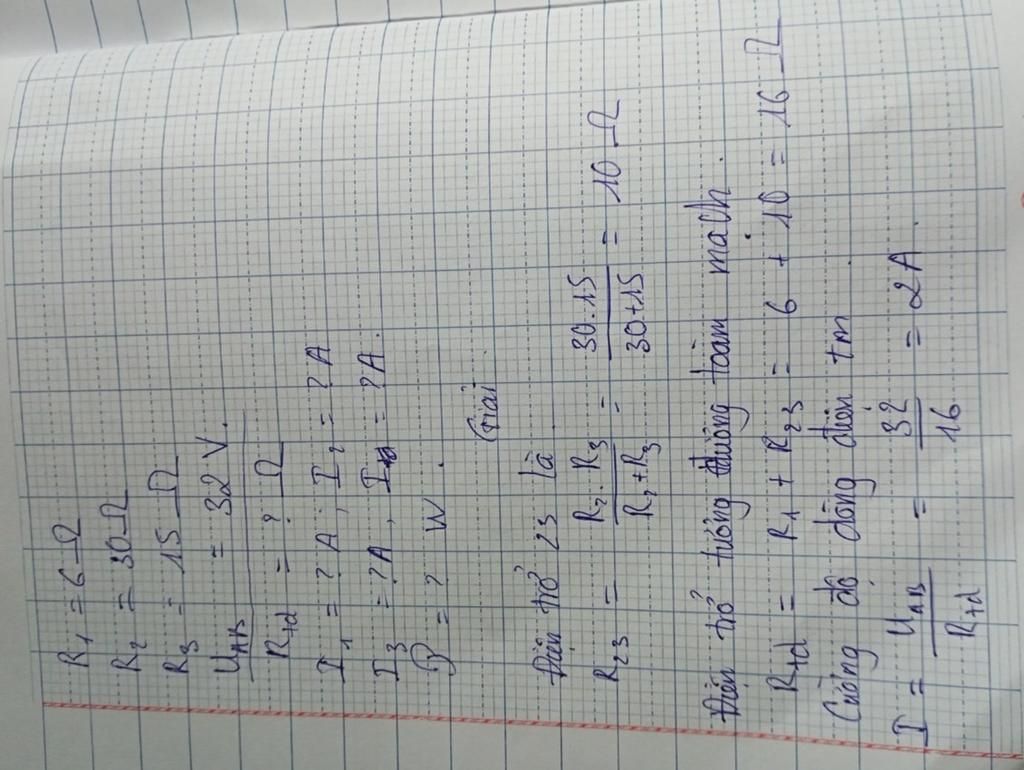 R1 = 6 Ω
R2 = 30 Ω
R3 = 15 Ω
UAB = 32 V.
Rtđ = ? Ω
I1 = ? A, I2 = ? A
I3 = ? A, = ? A.
P = ? W.
Giải
Điện trở 23 là
R23 = R2 . R3 / R2 + R3 = 30 . 15 / 30 + 15 = 10 Ω
Điện trở tương đương toàn mạch.
Rtđ = R1 + R23 = 6 + 10 = 16 Ω
Cường độ dòng điện tm
I = UAB / Rtđ = 32 / 16 = 2A.